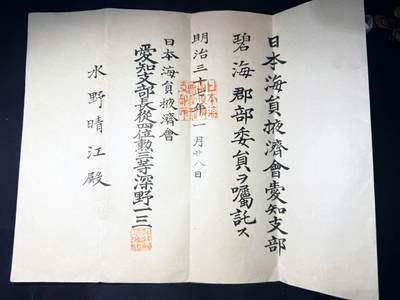 日本海員掖濟會愛知支部
碧海郡部委員ヲ囑託ス
明治三十七年一月廿八日
日本海員掖濟會
愛知支部長從四位勲三等深野一三
水野晴江殿